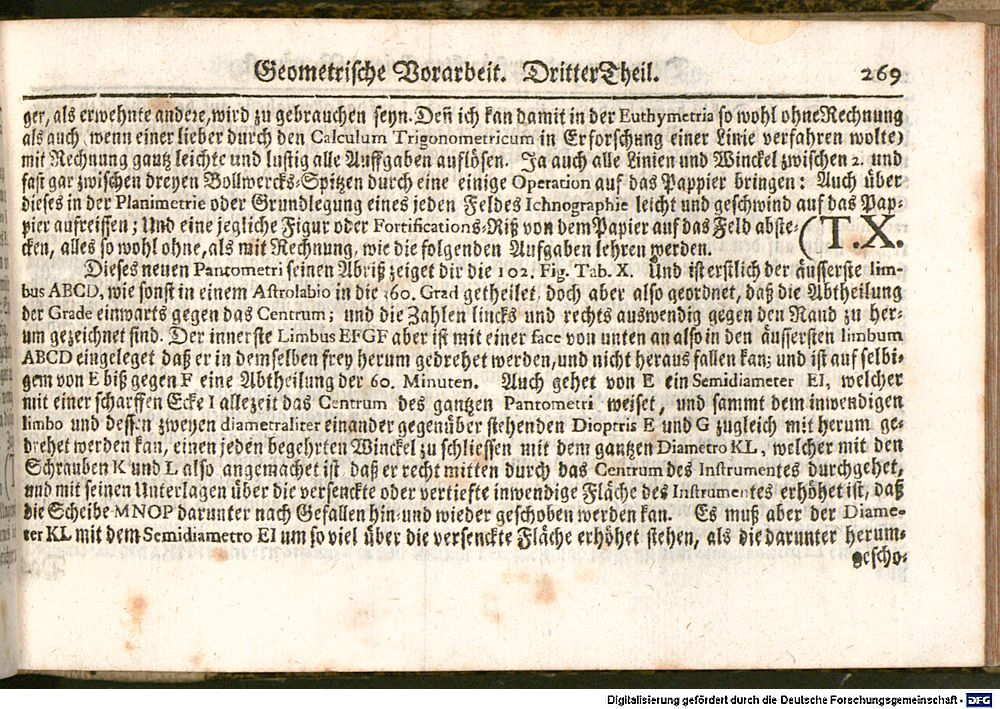 Geometrische Vorarbeit. Dritter Theil. 269
ger, als erwehnte andere, wird zu gebrauchen seyn. Deñ ich kan damit in der Euthymetria so wohl ohne Rechnung
als auch (wenn einer lieber durch den Calculum Trigonometricum in Erforschung einer Linie verfahren wolte)
mit Rechnung gantz leichte und lustig alle Auffgaben auflösen. Ja auch alle Linien und Winckel zwischen 2. und
fast gar zwischen dreyen Bollwercks-Spitzen durch eine einige Operation auf das Pappier bringen: Auch über
dieses in der Planimetrie oder Grundlegung eines jeden Feldes Ichnographie leicht und geschwind auf das Pap-
pier aufreissen; Und eine jegliche Figur oder Fortifications-Riß von dem Papier auf das Feld abste- (T.X.
cken, alles so wohl ohne, als mit Rechnung, wie die folgenden Aufgaben lehren werden.
Dieses neuen Pantometri seinen Abriß zeiget dir die 102. Fig. Tab. X. Und ist erstlich der äusserste lim-
bus ABCD, wie sonst in einem Astrolabio in die 360. Grad getheilet, doch aber also geordnet, daß die Abtheilung
der Grade einwarts gegen das Centrum; und die Zahlen lincks und rechts auswendig gegen den Rand zu her-
um gezeichnet sind. Der innerste Limbus EFGF aber ist mit einer face von unten an also in den äussersten limbum
ABCD eingeleget daß er in demselben frey herum gedrehet werden, und nicht heraus fallen kan; und ist auf selbi-
gem von E biß gegen F eine Abtheilung der 60. Minuten. Auch gehet von E ein Semidiameter EI, welcher
mit einer scharffen Ecke I allezeit das Centrum des gantzen Pantometri weiset, und sammt dem inwendigen
limbo und dessen zweyen diametraliter einander gegenüber stehenden Dioptris E und G zugleich mit herum ge-
drehet werden kan, einen jeden begehrten Winckel zu schliessen mit dem gantzen Diametro KL, welcher mit den
Schrauben K und L also angemachet ist daß er recht mitten durch das Centrum des Instrumentes durchgehet,
und mit seinen Unterlagen über die versenckte oder vertiefte inwendige Fläche des Instrumentes erhöhet ist, daß
die Scheibe MNOP darunter nach Gefallen hin- und wieder geschoben werden kan. Es muß aber der Diame-
ter KL mit dem Semidiametro EI um so viel über die versenckte Fläche erhöhet stehen, als die darunter herum-
gescho-
Digitalisierung gefördert durch die Deutsche Forschungsgemeinschaft - DFG